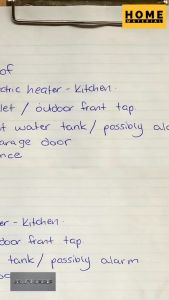 HOME
MATERIAL
of
ctric heater - Kitchen.
let / outdoor front tap.
t water tank / possibly ala
arage door
nce
er - Kitchen.
door front tap.
tank / possibly alarm